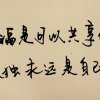 福是可以共享
孤独永远是自己